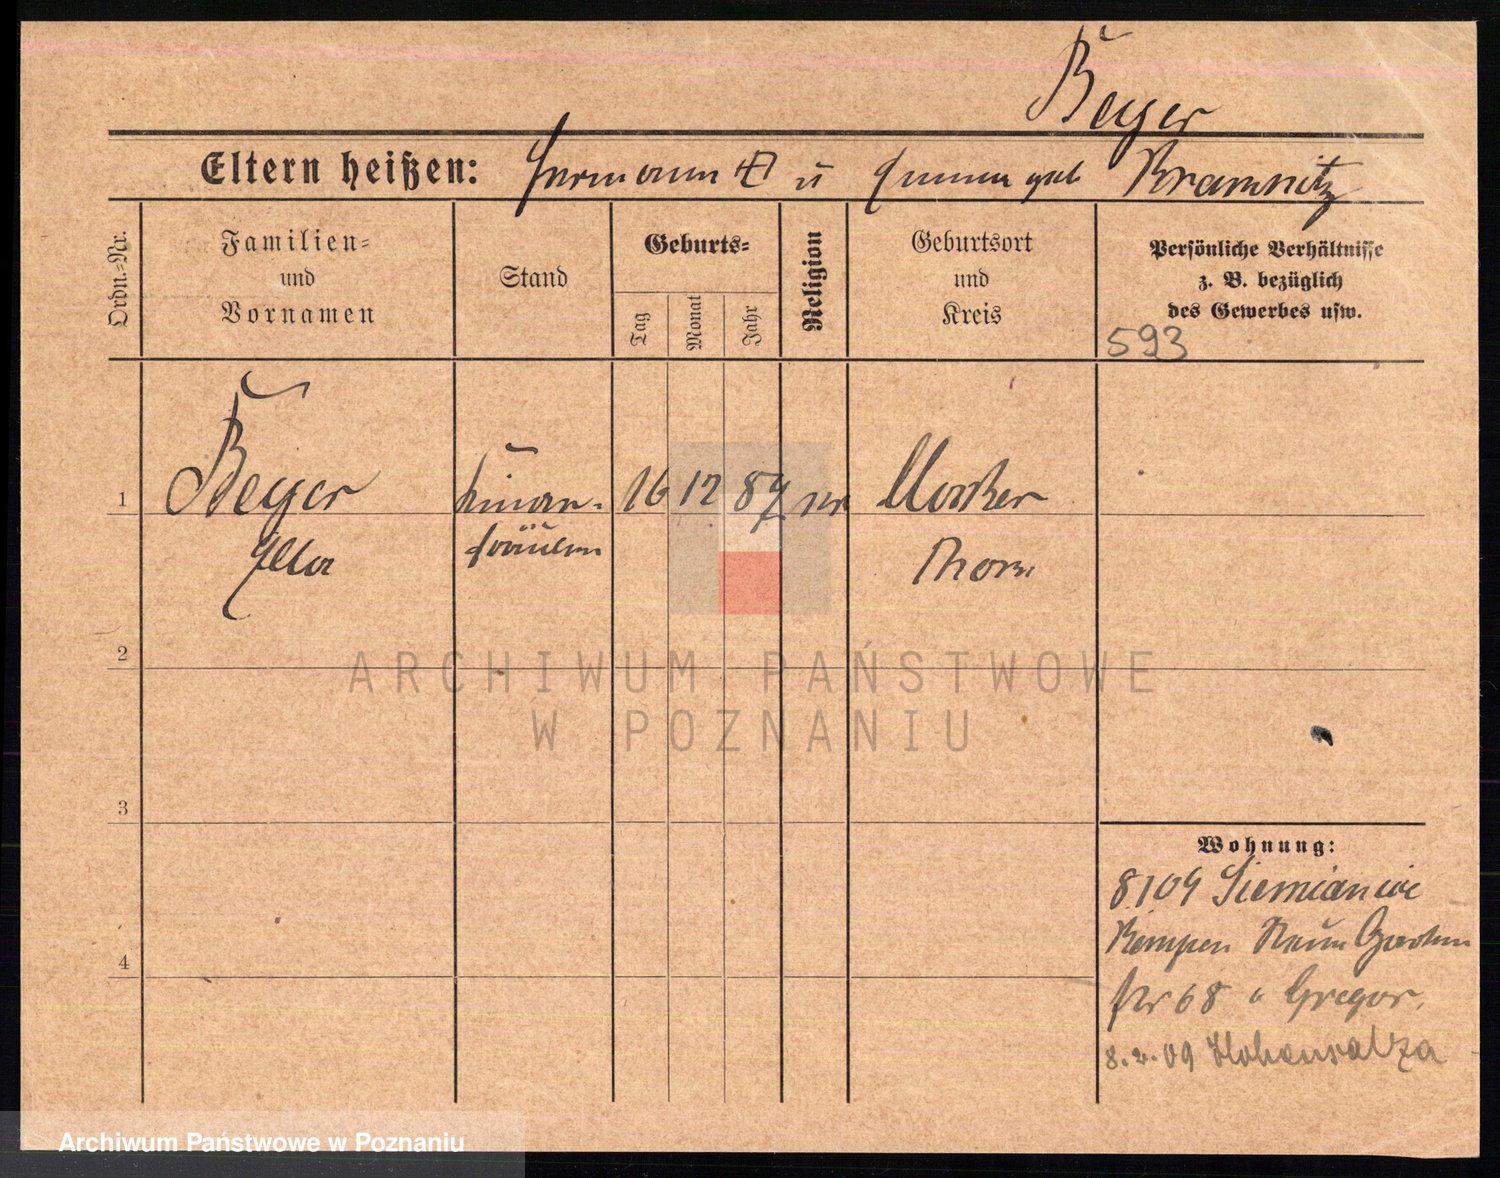 Beyer
Eltern heißen: Hermann u Emma geb Kramnitz
Ordn.-Nr.
Familien-
und
Vornamen
Stand
Geburts-
Tag
Monat
Jahr
Religion
Geburtsort
und
Kreis
Persönliche Verhältnisse
z. B. bezüglich
des Gewerbes usw.
593
1
Beyer
Ella
fräulein
16 12 87
Mocker
Thorn
2
3
4
Wohnung:
8109 Siemianice
Kempen Garten
68 Gregor
8.2.09 Hohensalza
ARCHIWUM PAŃSTWOWE
W POZNANIU
Archiwum Państwowe w Poznaniu